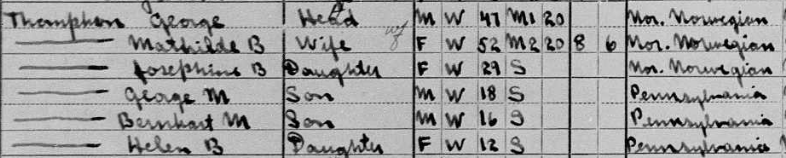 Thomphson George Head M W 47 M1 20 Nor. Norwegian
Mathilde B Wife F W 52 M2 20 8 6 Nor. Norwegian
Josephine B Daughter F W 29 S Nor. Norwegian
George M Son M W 18 S Pennsylvania
Bernhart M Son M W 16 S Pennsylvania
Helen B Daughter F W 12 S Pennsylvania